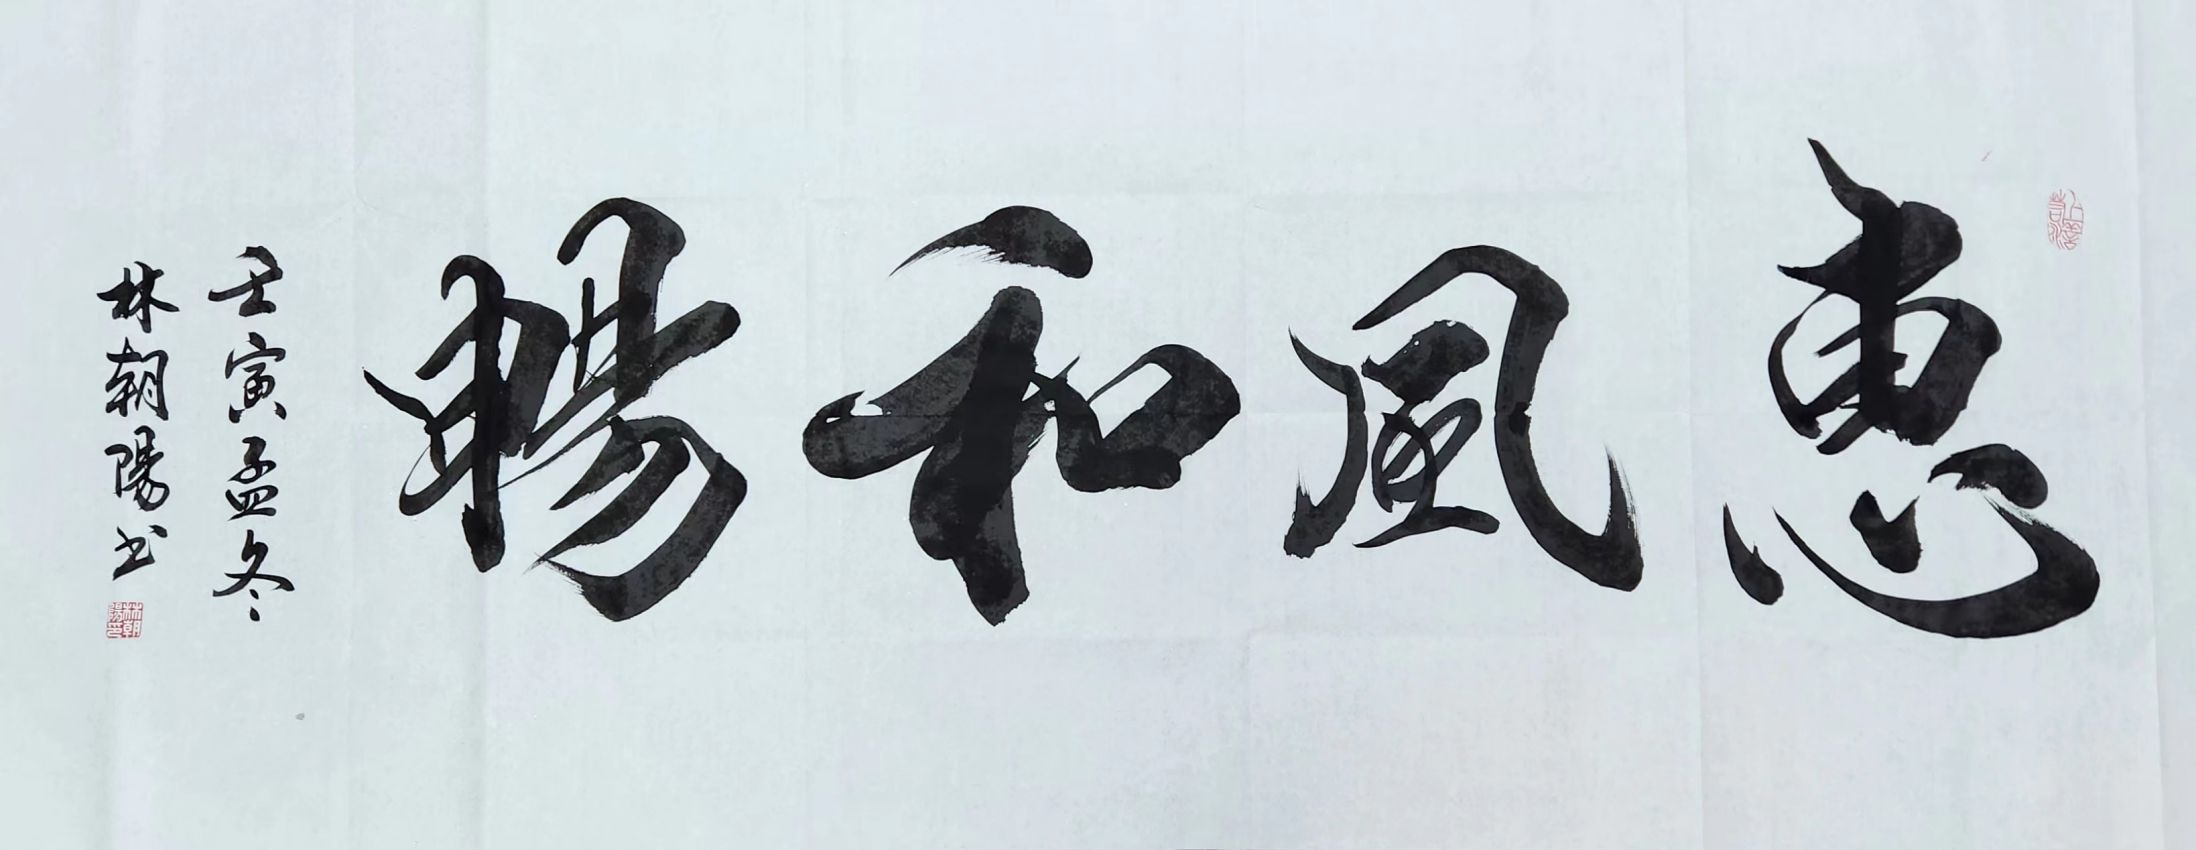 惠風和暢
壬寅孟冬
林朝陽书
林朝陽印